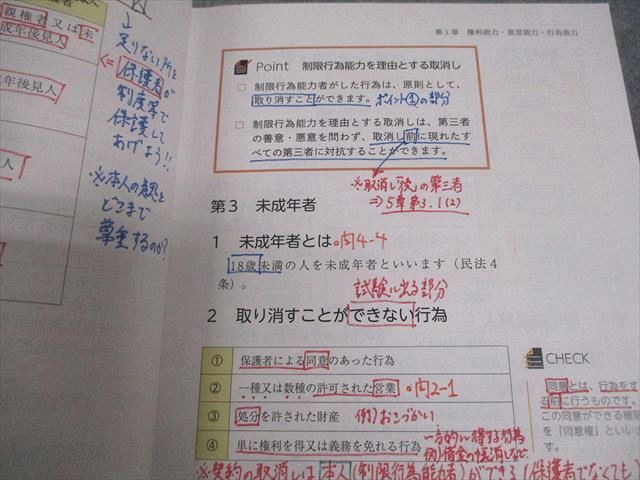 親権者又は未
成年後見人
年後見人
人
↓
足りない所を
保護者が
制度等で
保護して
あげよう!!
※本人の意思を
どこまで
尊重するのか?
第1章 権利能力・意思能力・行為能力
Point 制限行為能力を理由とする取消し
□ 制限行為能力者がした行為は、原則として、
取り消すことができます。ポイント①の部分
□ 制限行為能力を理由とする取消しは、第三者
の善意・悪意を問わず、取消し前に現れたす
べての第三者に対抗することができます。
※取消し「後」の第三者
⇒5章第3.1(2)
第3 未成年者
1 未成年者とは 肉4-4
18歳未満の人を未成年者といいます(民法4
条)。
試験に出る部分
2 取り消すことができない行為
① 保護者による同意のあった行為
② 一種又は数種の許可された営業 肉2-1
③ 処分を許された財産 例)おこづかい
④ 単に権利を得又は義務を免れる行為 一方的に得する行為
例)借金の帳消しなど
※契約の取消しは本人(制限行為能力者)ができる(保護者でなくても)
CHECK
同意とは、行為をす
る前に行うものです。
この同意ができる権限
を「同意権」といいま
す。